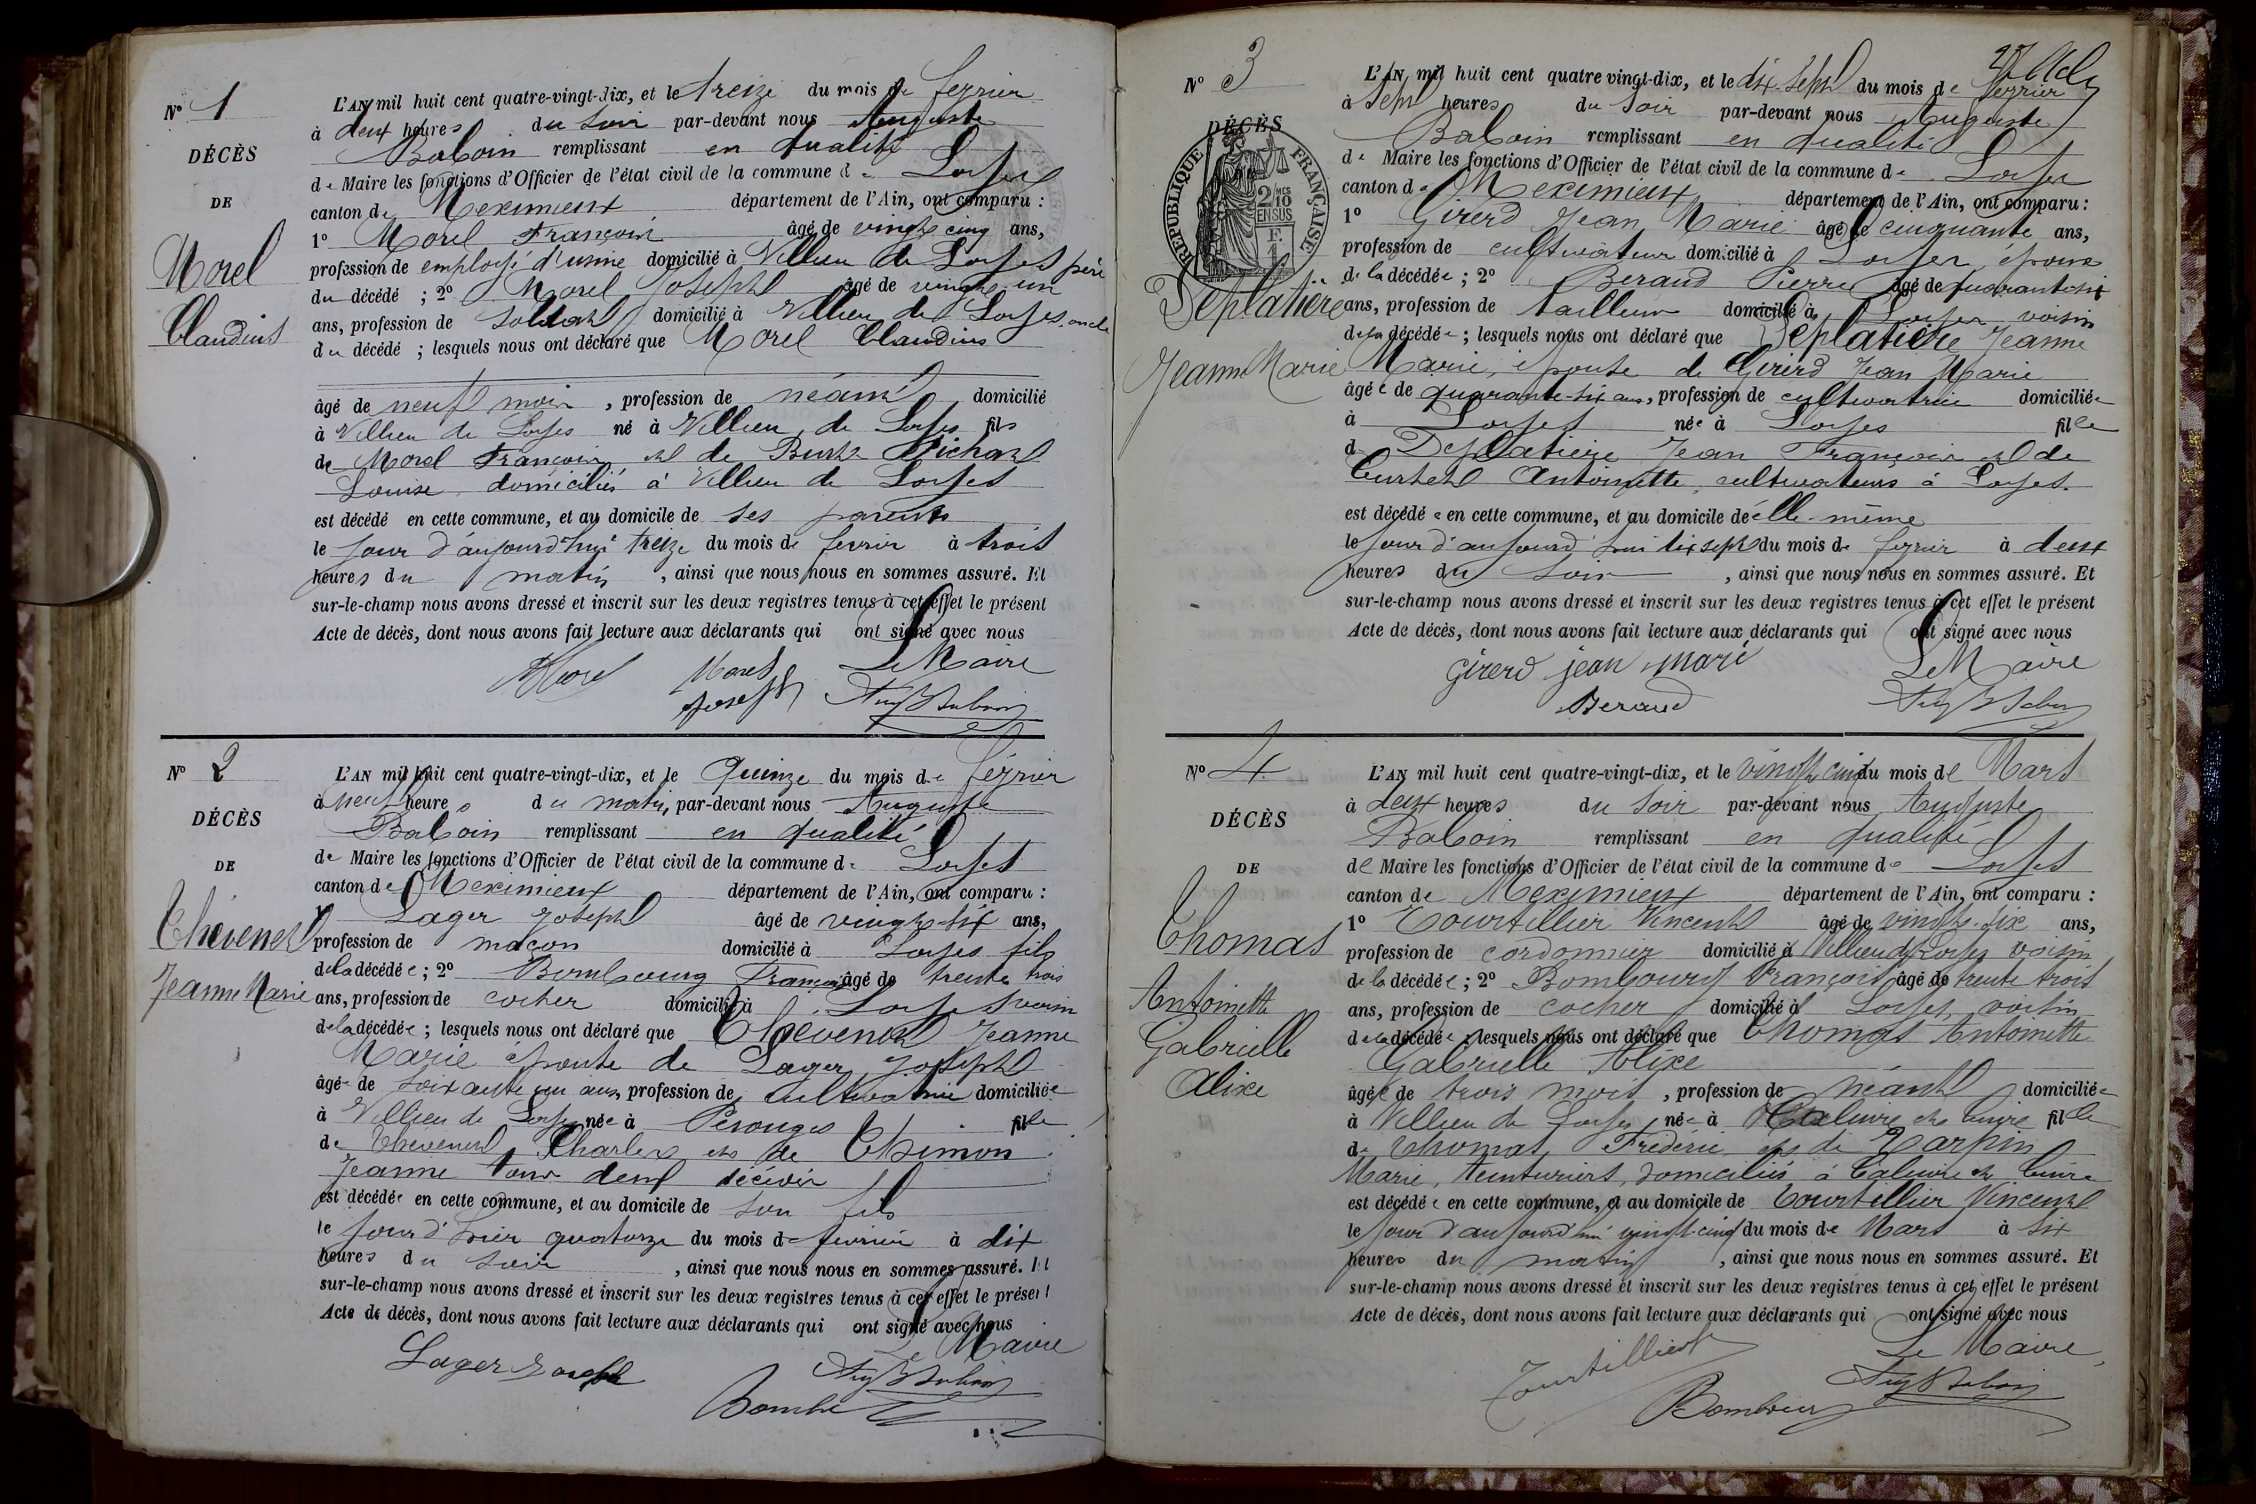 N° 1
DÉCÈS
DE
Morel
Claudius
L'AN mil huit cent quatre-vingt-dix, et le treize du mois de fevrier
à deux heures du soir par-devant nous Auguste
Baboin remplissant en qualité
de Maire les fonctions d'Officier de l'état civil de la commune de Loyes
canton de Meximieux département de l'Ain, ont comparu :
1° Morel François âgé de vingt cinq ans,
profession de employé d'usine domicilié à Villieu de Loyes père
du décédé ; 2° Morel Joseph âgé de vingt un
ans, profession de soldat domicilié à Villieu de Loyes oncle
du décédé ; lesquels nous ont déclaré que Morel Claudius
âgé de neuf mois, profession de néant domicilié
à Villieu de Loyes né à Villieu de Loyes fils
de Morel François et de Richard
Louise domiciliés à Villieu de Loyes
est décédé en cette commune, et au domicile de ses parents
le jour d'aujourd'hui treize du mois de fevrier à trois
heures du matin, ainsi que nous nous en sommes assuré. Et
sur-le-champ nous avons dressé et inscrit sur les deux registres tenus à cet effet le présent
Acte de décès, dont nous avons fait lecture aux déclarants qui ont signé avec nous
Morel Morel Le Maire
Joseph Aug Baboin
N° 2
DÉCÈS
DE
Thévenet
Jeanne Marie
L'AN mil huit cent quatre-vingt-dix, et le Quinze du mois de février
à neuf heures du matin, par-devant nous Auguste
Baboin remplissant en qualité
de Maire les fonctions d'Officier de l'état civil de la commune de Loyes
canton de Meximieux département de l'Ain, ont comparu :
1° Lager Joseph âgé de vingt-six ans,
profession de maçon domicilié à Loyes fils
de la décédée ; 2° Bombourg François âgé de trente trois
ans, profession de cocher domicilié à Loyes voisin
de la décédée ; lesquels nous ont déclaré que Thévenet Jeanne
Marie épouse de Lager Joseph
âgée de soixante un ans, profession de cultivatrice domiciliée
à Villieu de Loyes née à Pérouges fille
de Thévenet Charles et de Thimon
Jeanne tous deux décédés
est décédée en cette commune, et au domicile de son fils
le jour d'hier quatorze du mois de fevrier à dix
heures du soir, ainsi que nous nous en sommes assuré. Et
sur-le-champ nous avons dressé et inscrit sur les deux registres tenus à cet effet le présent
Acte de décès, dont nous avons fait lecture aux déclarants qui ont signé avec nous
Le Maire
Lager Joseph Aug Baboin
27
N° 3
DÉCÈS
RÉPUBLIQUE FRANÇAISE
2/10 EN SUS
Deplatière
Jeanne Marie
L'AN mil huit cent quatre vingt-dix, et le dix-sept du mois de fevrier
à sept heures du soir par-devant nous Auguste
Baboin remplissant en qualité
de Maire les fonctions d'Officier de l'état civil de la commune de Loyes
canton de Meximieux département de l'Ain, ont comparu :
1° Girerd Jean Marie âgé de cinquante ans,
profession de cultivateur domicilié à Loyes, époux
de la décédée ; 2° Beraud Pierre âgé de quarante six
ans, profession de tailleur domicilié à Loyes voisin
de la décédée ; lesquels nous ont déclaré que Deplatière Jeanne
Marie, épouse de Girerd Jean Marie
âgée de quarante-six ans, profession de cultivatrice domiciliée
à Loyes née à Loyes fille
de Deplatière Jean François et de
Curtet Antoinette, cultivateurs à Loyes.
est décédée en cette commune, et au domicile de elle-même
le jour d'aujourd'hui dix sept du mois de fevrier à deux
heures du soir, ainsi que nous nous en sommes assuré. Et
sur-le-champ nous avons dressé et inscrit sur les deux registres tenus à cet effet le présent
Acte de décès, dont nous avons fait lecture aux déclarants qui ont signé avec nous
Girerd jean marie Le Maire
Beraud Aug Baboin
N° 4
DÉCÈS
DE
Thomas
Antoinette
Gabrielle
Alixe
L'AN mil huit cent quatre-vingt-dix, et le vingt cinq du mois de Mars
à deux heures du soir par-devant nous Auguste
Baboin remplissant en qualité
de Maire les fonctions d'Officier de l'état civil de la commune de Loyes
canton de Meximieux département de l'Ain, ont comparu :
1° Tourtillier Vincent âgé de vingt-six ans,
profession de cordonnier domicilié à Villieu de Loyes voisin
de la décédée ; 2° Bombourg François âgé de trente trois
ans, profession de cocher domicilié à Loyes, voisin
de la décédée ; lesquels nous ont déclaré que Thomas Antoinette
Gabrielle Alixe
âgée de trois mois, profession de néant domiciliée
à Villieu de Loyes née à Caluire et Cuire fille
de Thomas Frédéric et de Tarpin
Marie, teinturiers, domiciliés à Caluire et Cuire
est décédée en cette commune, et au domicile de Tourtillier Vincent
le jour d'aujourd'hui vingt-cinq du mois de Mars à six
heures du matin, ainsi que nous nous en sommes assuré. Et
sur-le-champ nous avons dressé et inscrit sur les deux registres tenus à cet effet le présent
Acte de décès, dont nous avons fait lecture aux déclarants qui ont signé avec nous
Tourtillier Le Maire,
Bombourg Aug Baboin